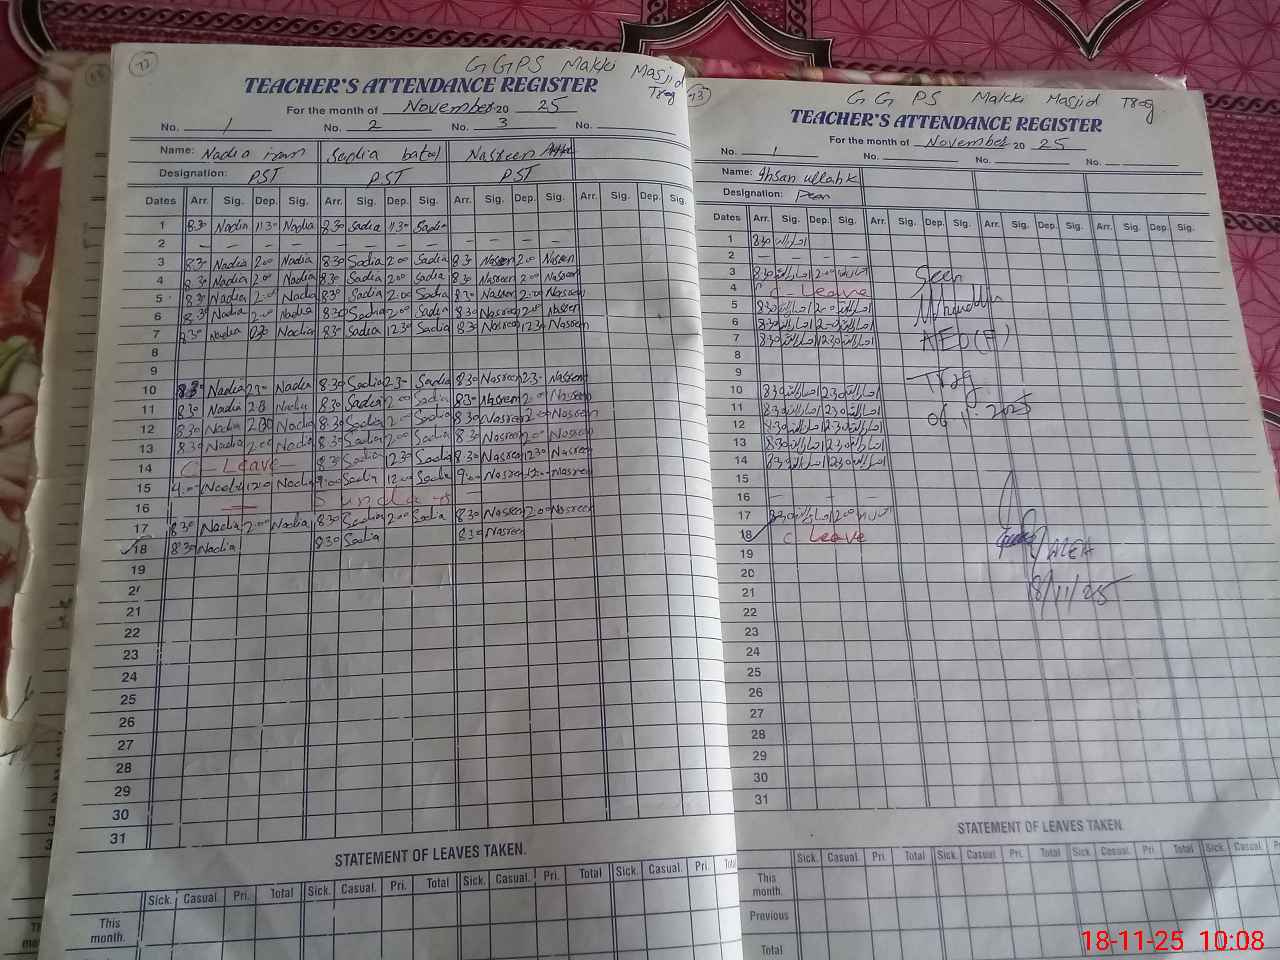 77
G G P S Makki Masjid Trag
TEACHER'S ATTENDANCE REGISTER
For the month of November 20 25
No. 1 No. 2 No. 3 No.
Name: Nadia iram Sadia batol Nasreen
Designation: PST PST PST
Dates Arr. Sig. Dep. Sig. Arr. Sig. Dep. Sig. Arr. Sig. Dep. Sig. Arr. Sig. Dep. Sig.
1 8:30 Nadia 11:30 Nadia 8:30 Sadia 11:30 Sadia
2 — — — — — — — — — — — —
3 8:30 Nadia 2:00 Nadia 8:30 Sadia 2:00 Sadia 8:30 Nasreen 2:00 Nasreen
4 8:30 Nadia 2:00 Nadia 8:30 Sadia 2:00 Sadia 8:30 Nasreen 2:00 Nasreen
5 8:30 Nadia 2:00 Nadia 8:30 Sadia 2:00 Sadia 8:30 Nasreen 2:00 Nasreen
6 8:30 Nadia 2:00 Nadia 8:30 Sadia 2:00 Sadia 8:30 Nasreen 2:00 Nasreen
7 8:30 Nadia Nadia 8:30 Sadia 12:30 Sadia 8:30 Nasreen 12:30 Nasreen
8
9
10 8:30 Nadia 2:30 Nadia 8:30 Sadia 2:30 Sadia 8:30 Nasreen 2:30 Nasreen
11 8:30 Nadia Nadia 8:30 Sadia 2:00 Sadia 8:30 Nasreen 2:00 Nasreen
12 8:30 Nadia Nadia 8:30 Sadia 2:00 Sadia 8:30 Nasreen 2:00 Nasreen
13 8:30 Nadia 2:00 Nadia 8:30 Sadia 2:00 Sadia 8:30 Nasreen 2:00 Nasreen
14 C - Leave 8:30 Sadia 12:30 Sadia 8:30 Nasreen 12:30 Nasreen
15 Nadia 12:00 Nadia 9:00 Sadia 12:00 Sadia 9:00 Nasreen 12:00 Nasreen
16 — Sunday
17 8:30 Nadia 2:00 Nadia 8:30 Sadia 2:00 Sadia 8:30 Nasreen 2:00 Nasreen
18 8:30 Nadia 8:30 Sadia 8:30 Nasreen
19
20
21
22
23
24
25
26
27
28
29
30
31
STATEMENT OF LEAVES TAKEN.
Sick. Casual. Pri. Total Sick. Casual. Pri. Total Sick. Casual. Pri. Total Sick. Casual. Pri. Total
This month.
G G P S Makki Masjid Trag
TEACHER'S ATTENDANCE REGISTER
For the month of November 20 25
No. 1 No. No. No.
Name: Ihsan ullah k
Designation: Peon
Dates Arr. Sig. Dep. Sig. Arr. Sig. Dep. Sig. Arr. Sig. Dep. Sig. Arr. Sig. Dep. Sig.
1 8:30 احسان اللہ
2 — — — —
3 8:30 احسان اللہ 2:00 احسان اللہ
4 C - Leave
5 8:30 احسان اللہ 2:00 احسان اللہ
6 8:30 احسان اللہ 2:00 احسان اللہ
7 8:30 احسان اللہ 12:30 احسان اللہ
8
9
10 8:30 احسان اللہ 2:30 احسان اللہ
11 8:30 احسان اللہ 2:30 احسان اللہ
12 8:30 احسان اللہ 2:30 احسان اللہ
13 8:30 احسان اللہ 2:30 احسان اللہ
14 8:30 احسان اللہ 2:30 احسان اللہ
15
16 — — —
17 8:30 احسان اللہ 2:00 احسان اللہ
18 C Leave
19
20
21
22
23
24
25
26
27
28
29
30
31
Seen
AEO(F)
Trag
06.11.2025
18/11/25
STATEMENT OF LEAVES TAKEN.
Sick. Casual. Pri. Total Sick. Casual. Pri. Total Sick. Casual. Pri. Total Sick. Casual.
This month.
Previous
Total
18-11-25 10:08